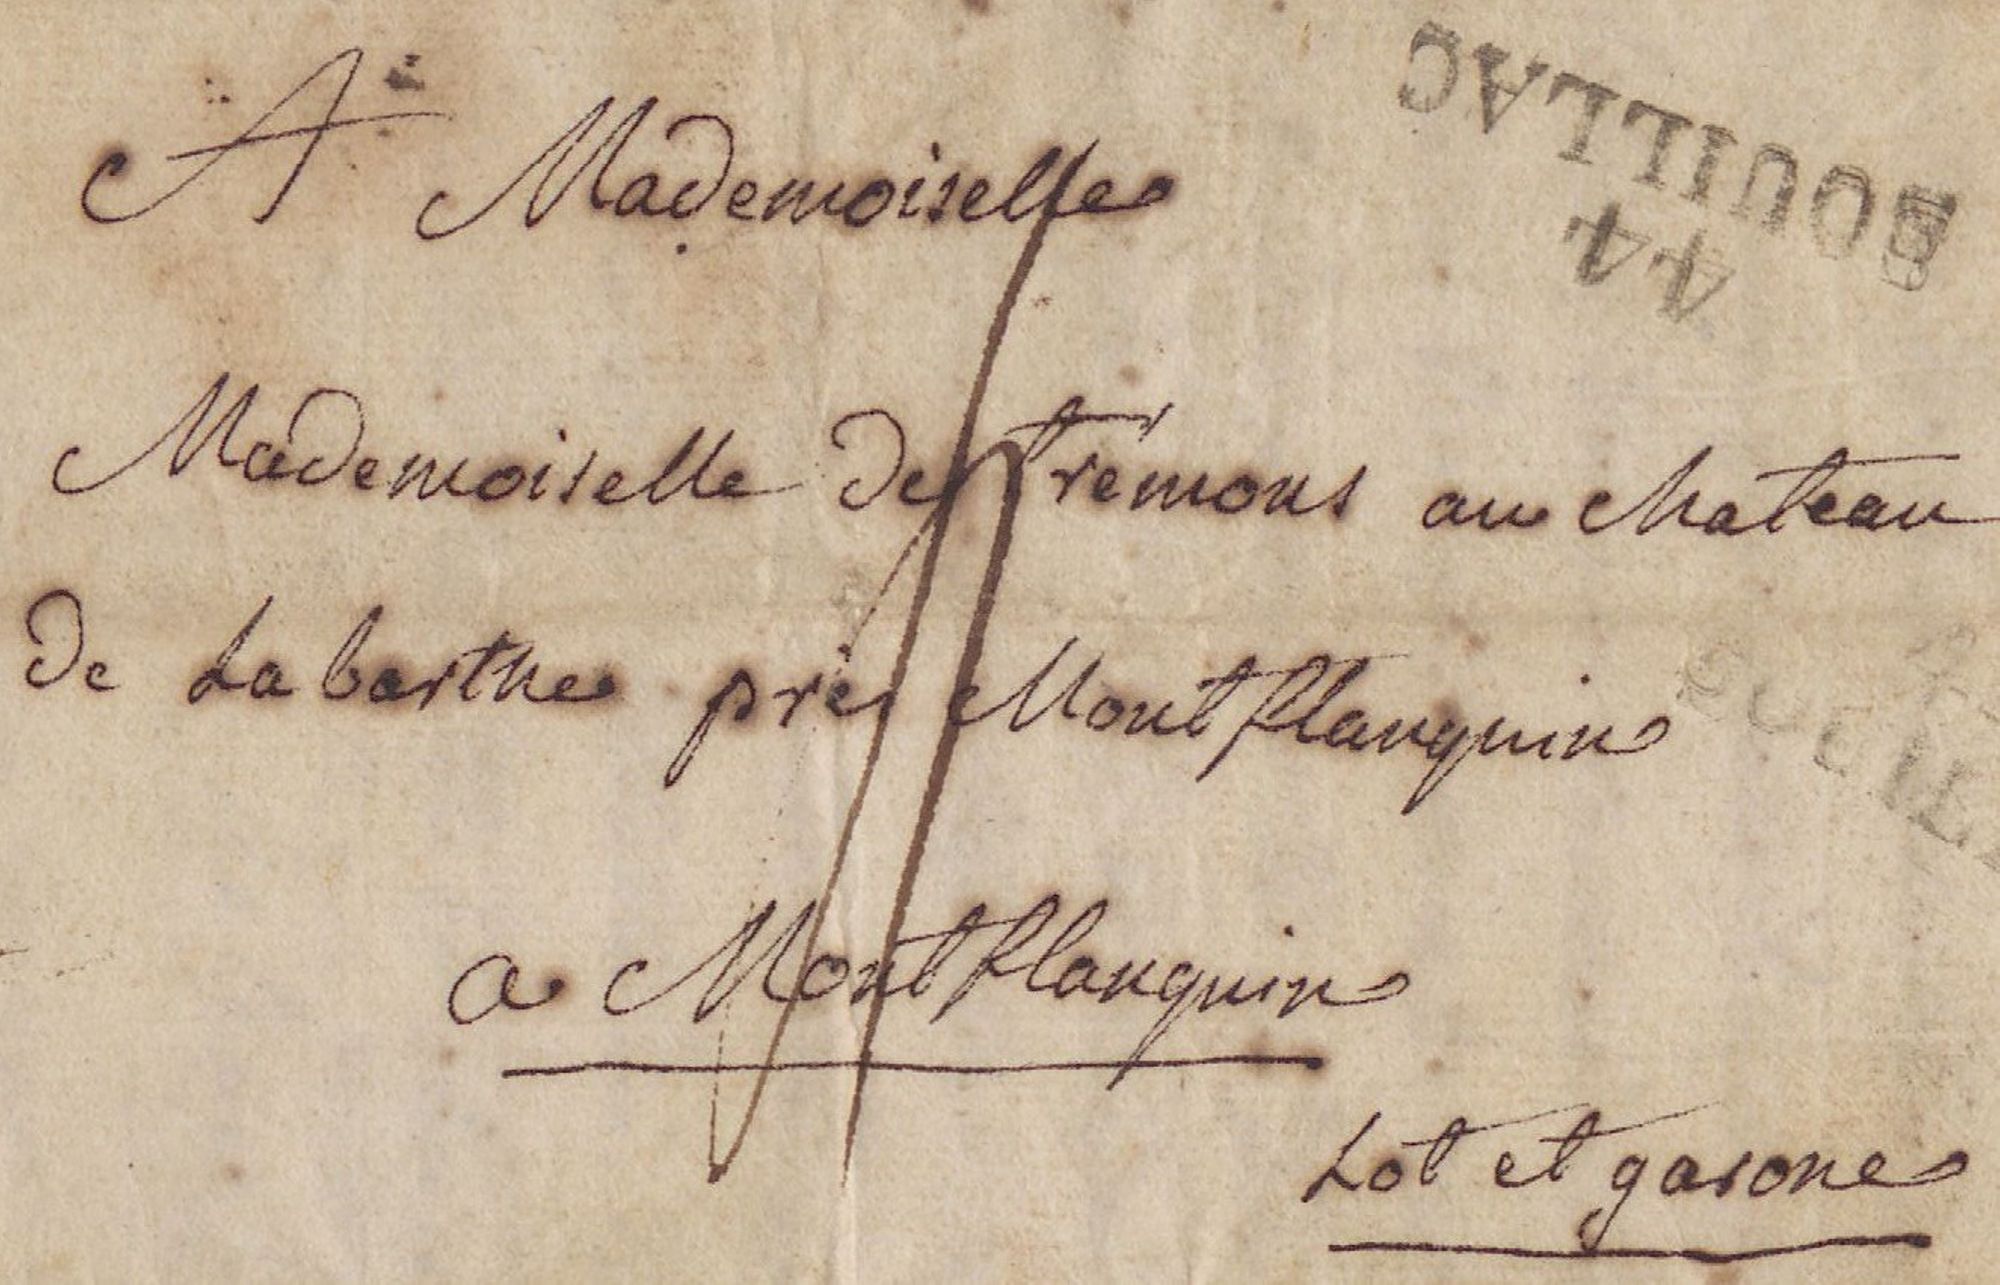 44
SOUILLAC
A Mademoiselle
Mademoiselle de Trémons au chateau
de Labarthe près Montflanquin
a Montflanquin
Lot et garone